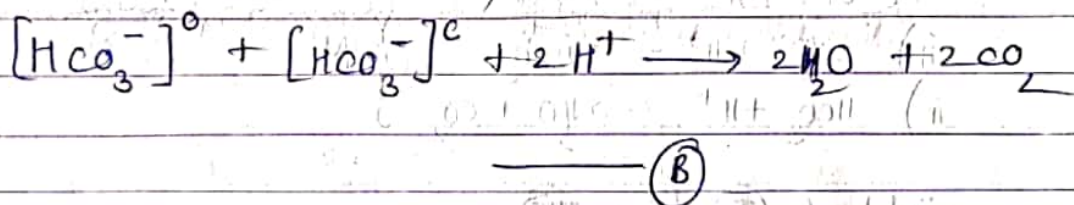 [HCO₃⁻]⁰ + [HCO₃⁻]ᶜ + 2 H⁺ ⟶ 2H₂O + 2 CO₂
—— Ⓑ